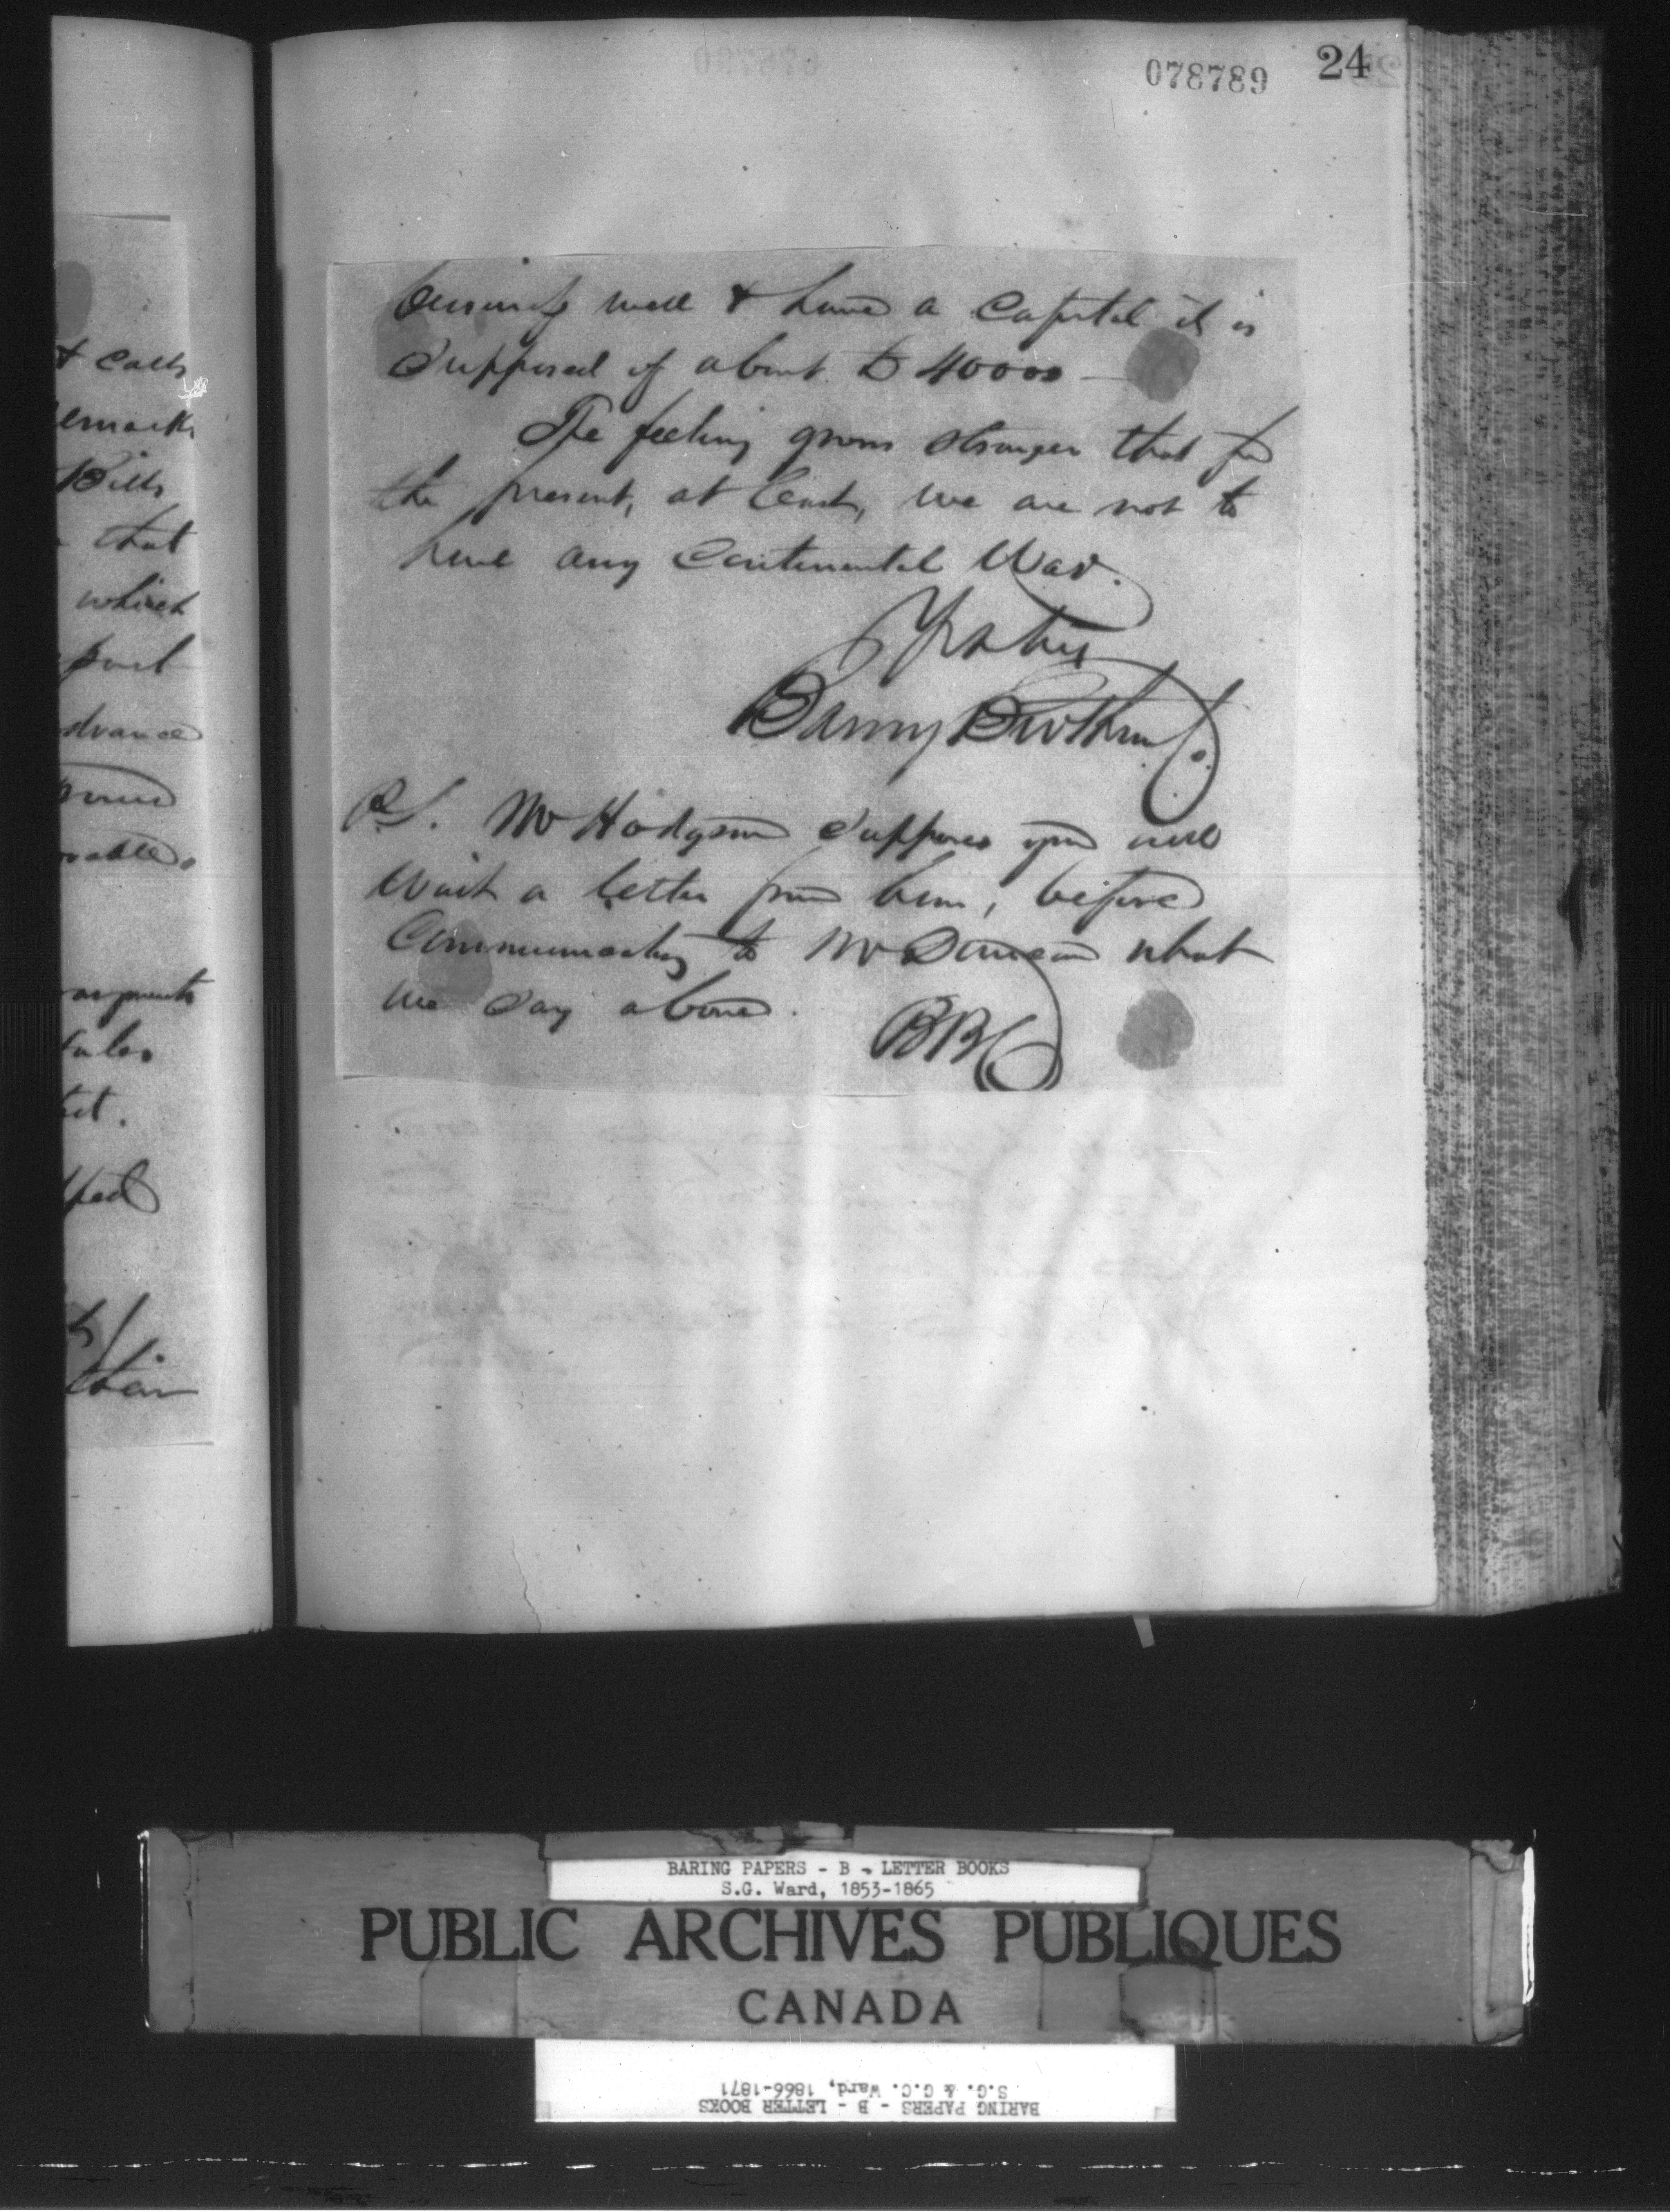 078789 24
& calls
emarks
Bills
that
which
part
dvance
ments
sales
ket.
ped
their
business well & have a Capital it is
supposed of about £ 40000 —
The feeling grows stronger that for
the present, at least, we are not to
have any Continental War.
Yrs truly
Baring Brothers Co.
P.S. Mr Hodgson supposes you will
wait a letter from him, before
Communicating to Mr Duncan what
we say above.
BBC
BARING PAPERS - B - LETTER BOOKS
S.G. Ward, 1853-1865
PUBLIC ARCHIVES PUBLIQUES
CANADA
BARING PAPERS - B - LETTER BOOKS
S.G. & G.C. Ward, 1866-1871